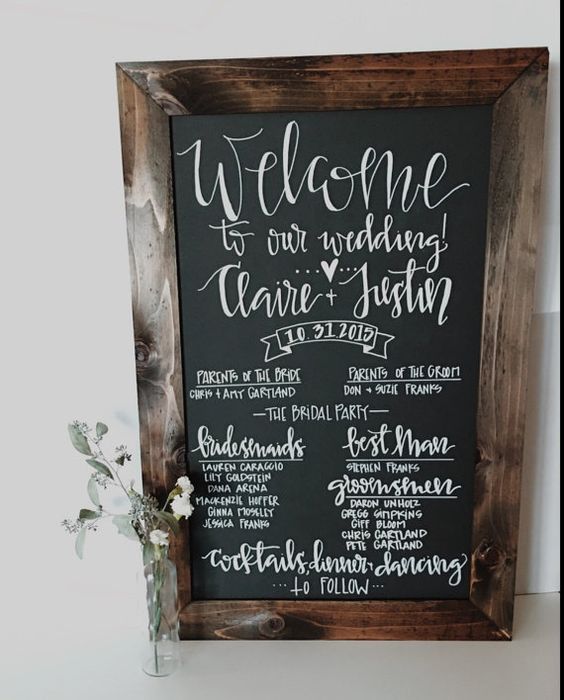 Welcome
to our wedding!
Claire + Justin
10.31.2015
PARENTS OF THE BRIDE
CHRIS + AMY GARTLAND
PARENTS OF THE GROOM
DON + SUZIE FRANKS
—THE BRIDAL PARTY—
bridesmaids
LAUREN CARAGGIO
LILY GOLDSTEIN
DANA ARENA
MACKENZIE HOFFER
GINNA MOSELEY
JESSICA FRANKS
best man
STEPHEN FRANKS
groomsmen
DARON UNHOLZ
GREGG SIMPKINS
GIFF BLOOM
CHRIS GARTLAND
PETE GARTLAND
cocktails, dinner + dancing
...to FOLLOW...